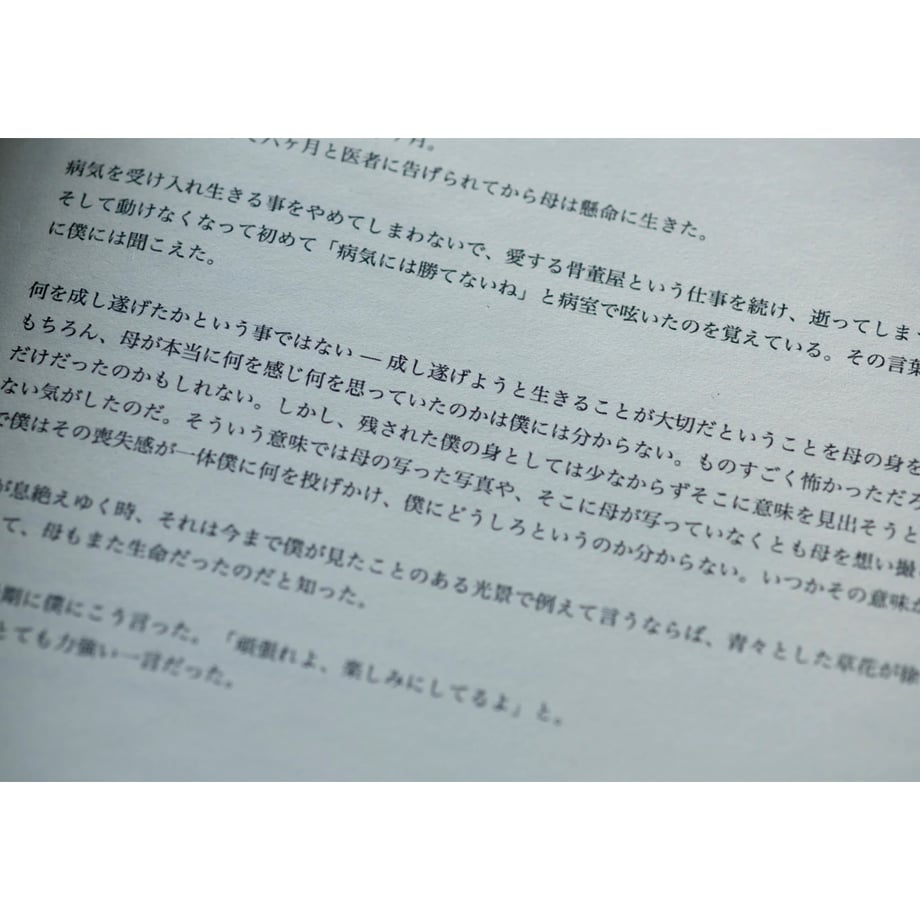 月。
六ヶ月と医者に告げられてから母は懸命に生きた。
病気を受け入れ生きる事をやめてしまわないで、愛する骨董屋という仕事を続け、逝ってしま
そして動けなくなって初めて「病気には勝てないね」と病室で呟いたのを覚えている。その言葉
に僕には聞こえた。
何を成し遂げたかという事ではない — 成し遂げようと生きることが大切だということを母の身を
もちろん、母が本当に何を感じ何を思っていたのかは僕には分からない。ものすごく怖かっただろ
だけだったのかもしれない。しかし、残された僕の身としては少なからずそこに意味を見出そうと
ない気がしたのだ。そういう意味では母の写った写真や、そこに母が写っていなくとも母を想い撮
で僕はその喪失感が一体僕に何を投げかけ、僕にどうしろというのか分からない。いつかその意味が
が息絶えゆく時、それは今まで僕が見たことのある光景で例えて言うならば、青々とした草花が徐
て、母もまた生命だったのだと知った。
期に僕にこう言った。「頑張れよ、楽しみにしてるよ」と。
とても力強い一言だった。